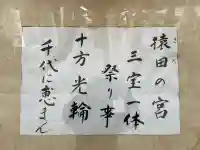 猿田の宮
三宝一体
祭り華
十方光輪
千代に恵まん